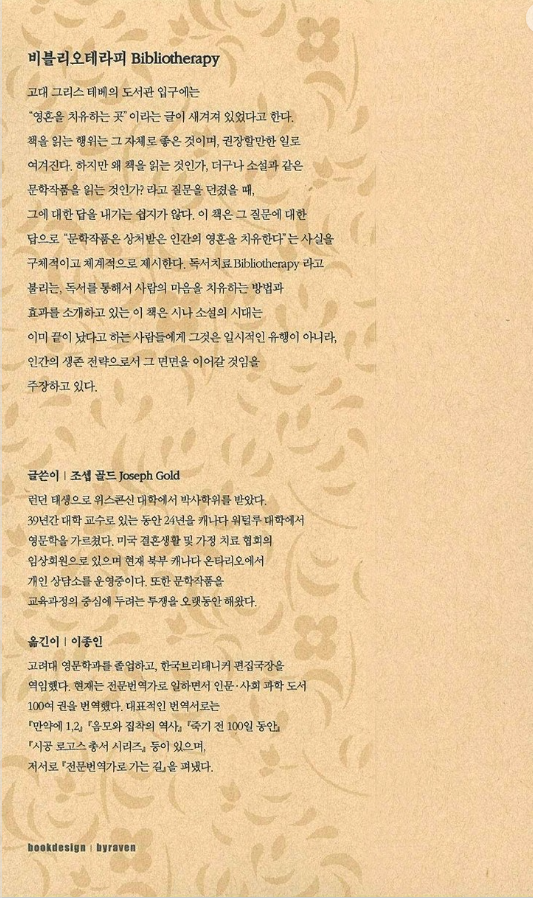 비블리오테라피 Bibliotherapy
고대 그리스 테베의 도서관 입구에는
“영혼을 치유하는 곳”이라는 글이 새겨져 있었다고 한다.
책을 읽는 행위는 그 자체로 좋은 것이며, 권장할만한 일로
여겨진다. 하지만 왜 책을 읽는 것인가, 더구나 소설과 같은
문학작품을 읽는 것인가? 라고 질문을 던졌을 때,
그에 대한 답을 내기는 쉽지가 않다. 이 책은 그 질문에 대한
답으로 “문학작품은 상처받은 인간의 영혼을 치유한다”는 사실을
구체적이고 체계적으로 제시한다. 독서치료Bibliotherapy 라고
불리는, 독서를 통해서 사람의 마음을 치유하는 방법과
효과를 소개하고 있는 이 책은 시나 소설의 시대는
이미 끝이 났다고 하는 사람들에게 그것은 일시적인 유행이 아니라,
인간의 생존 전략으로서 그 면면을 이어갈 것임을
주장하고 있다.
글쓴이 | 조셉 골드 Joseph Gold
런던 태생으로 위스콘신 대학에서 박사학위를 받았다.
39년간 대학 교수로 있는 동안 24년을 캐나다 워털루 대학에서
영문학을 가르쳤다. 미국 결혼생활 및 가정 치료 협회의
임상회원으로 있으며 현재 북부 캐나다 온타리오에서
개인 상담소를 운영중이다. 또한 문학작품을
교육과정의 중심에 두려는 투쟁을 오랫동안 해왔다.
옮긴이 | 이종인
고려대 영문학과를 졸업하고, 한국브리태니커 편집국장을
역임했다. 현재는 전문번역가로 일하면서 인문·사회 과학 도서
100여 권을 번역했다. 대표적인 번역서로는
『만약에 1,2』 『음모와 집착의 역사』 『죽기 전 100일 동안』
『시공 로고스 총서 시리즈』 등이 있으며,
저서로 『전문번역가로 가는 길』을 펴냈다.
bookdesign | byraven